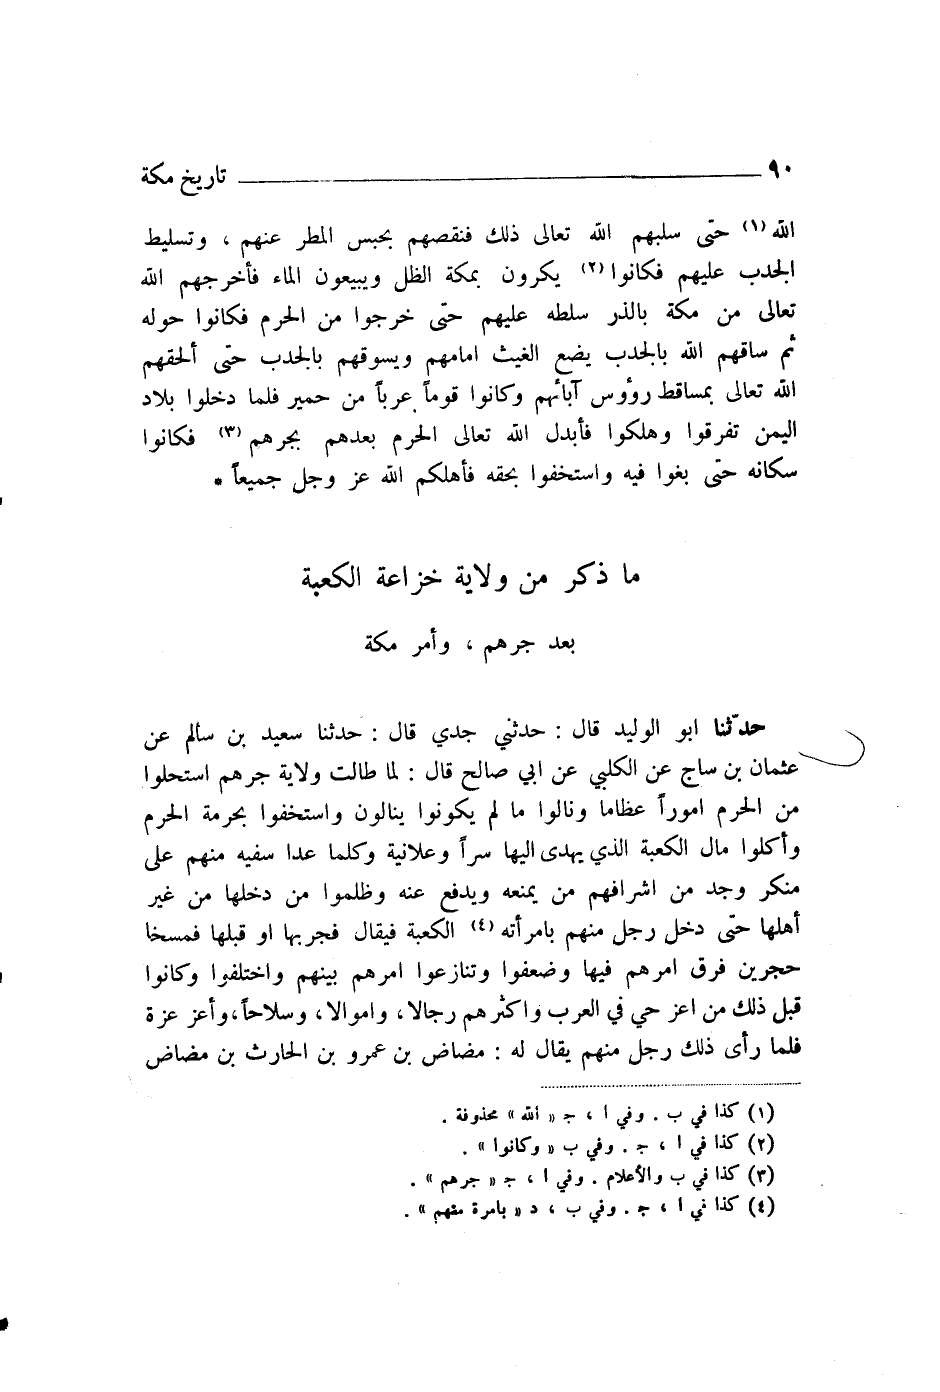 ٩٠ تاريخ مكة
الله (١) حتى سلبهم الله تعالى ذلك فنقصهم بحبس المطر عنهم ، وتسليط
الجدب عليهم فكانوا (٢) يكرون بمكة الظل ويبيعون الماء فأخرجهم الله
تعالى من مكة بالذر سلطه عليهم حتى خرجوا من الحرم فكانوا حوله
ثم ساقهم الله بالجدب يضع الغيث امامهم ويسوقهم بالجدب حتى ألحقهم
الله تعالى بمساقط رؤوس آبائهم وكانوا قوماً عرباً من حمير فلما دخلوا بلاد
اليمن تفرقوا وهلكوا فأبدل الله تعالى الحرم بعدهم بجرهم (٣) فكانوا
سكانه حتى بغوا فيه واستخفوا بحقه فأهلكم الله عز وجل جميعاً *
ما ذكر من ولاية خزاعة الكعبة
بعد جرهم ، وأمر مكة
حدّثنا ابو الوليد قال : حدثني جدي قال : حدثنا سعيد بن سألم عن
عثمان بن ساج عن الكلبي عن ابي صالح قال : لما طالت ولاية جرهم استحلوا
من الحرم اموراً عظاما ونالوا ما لم يكونوا ينالون واستخفوا بحرمة الحرم
وأكلوا مال الكعبة الذي يهدى اليها سراً وعلانية وكلما عدا سفيه منهم على
منكر وجد من اشرافهم من يمنعه ويدفع عنه وظلموا من دخلها من غير
أهلها حتى دخل رجل منهم بامرأته (٤) الكعبة فيقال فجربها او قبلها فمسخا
حجرين فرق امرهم فيها وضعفوا وتنازعوا امرهم بينهم واختلفوا وكانوا
قبل ذلك من اعز حي في العرب واكثرهم رجالا، واموالا، وسلاحاً، وأعز عزة
فلما رأى ذلك رجل منهم يقال له : مضاض بن عمرو بن الحارث بن مضاض
(١) كذا في ب . وفي ا ، ج « الله » محذوفة .
(٢) كذا في ا ، ج . وفي ب « وكانوا » .
(٣) كذا في ب والأعلام . وفي ا ، ج « جرهم » .
(٤) كذا في أ ، ج . وفي ب ، د « بامرة منهم » .